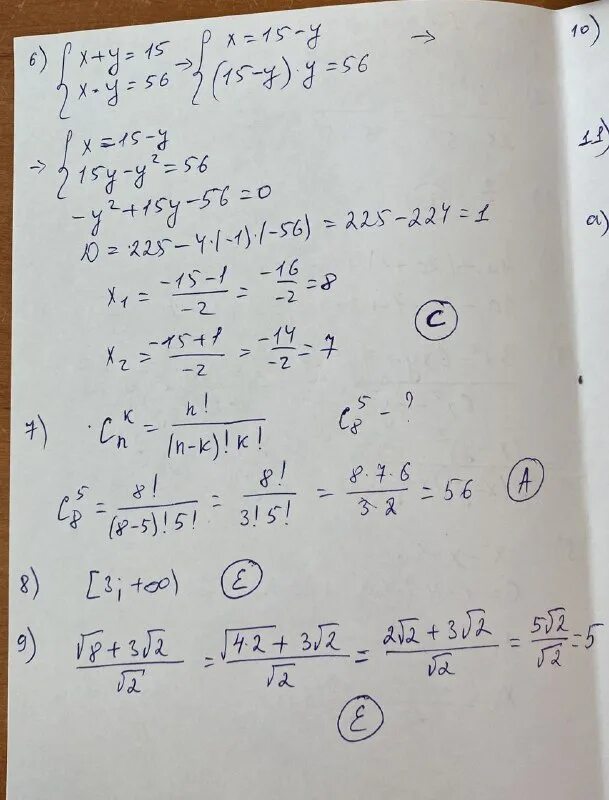 6) { x+y=15 → { x=15-y →
x·y=56 (15-y)·y=56
→ { x=15-y
15y-y²=56
-y²+15y-56=0
D=225-4·(-1)·(-56)=225-224=1
x₁ = (-15-1)/(-2) = (-16)/(-2) = 8
C
x₂ = (-15+1)/(-2) = (-14)/(-2) = 7
7) C_n^k = n!/((n-k)! k!) C_8^5 - ?
C_8^5 = 8!/((8-5)! 5!) = 8!/(3! 5!) = (8·7·6)/(3·2) = 56 A
8) [3; +∞) E
9) (√8+3√2)/√2 = (√(4·2)+3√2)/√2 = (2√2+3√2)/√2 = 5√2/√2 = 5
E
10)
11)
a)